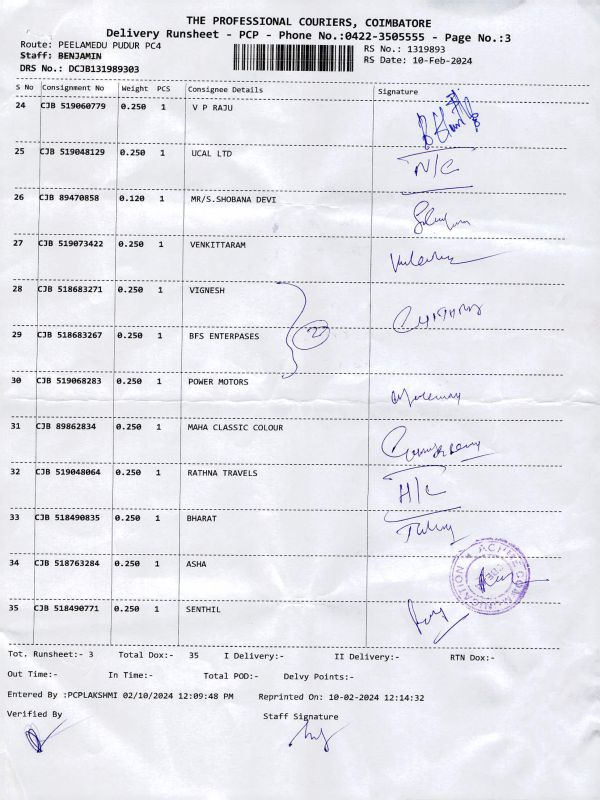 THE PROFESSIONAL COURIERS, COIMBATORE
Delivery Runsheet - PCP - Phone No.:0422-3505555 - Page No.:3
Route: PEELAMEDU PUDUR PC4 RS No.: 1319893
Staff: BENJAMIN RS Date: 10-Feb-2024
DRS No.: DCJB131989303
S No Consignment No Weight PCS Consignee Details Signature
24 CJB 519060779 0.250 1 V P RAJU
25 CJB 519048129 0.250 1 UCAL LTD N/C
26 CJB 89470858 0.120 1 MR/S.SHOBANA DEVI
27 CJB 519073422 0.250 1 VENKITTARAM
28 CJB 518683271 0.250 1 VIGNESH
29 CJB 518683267 0.250 1 BFS ENTERPASES
30 CJB 519068283 0.250 1 POWER MOTORS
31 CJB 89862834 0.250 1 MAHA CLASSIC COLOUR
32 CJB 519048064 0.250 1 RATHNA TRAVELS H/C
33 CJB 518490835 0.250 1 BHARAT
34 CJB 518763284 0.250 1 ASHA
35 CJB 518490771 0.250 1 SENTHIL
Tot. Runsheet:- 3 Total Dox:- 35 I Delivery:- II Delivery:- RTN Dox:-
Out Time:- In Time:- Total POD:- Delvy Points:-
Entered By :PCPLAKSHMI 02/10/2024 12:09:48 PM Reprinted On: 10-02-2024 12:14:32
Verified By Staff Signature